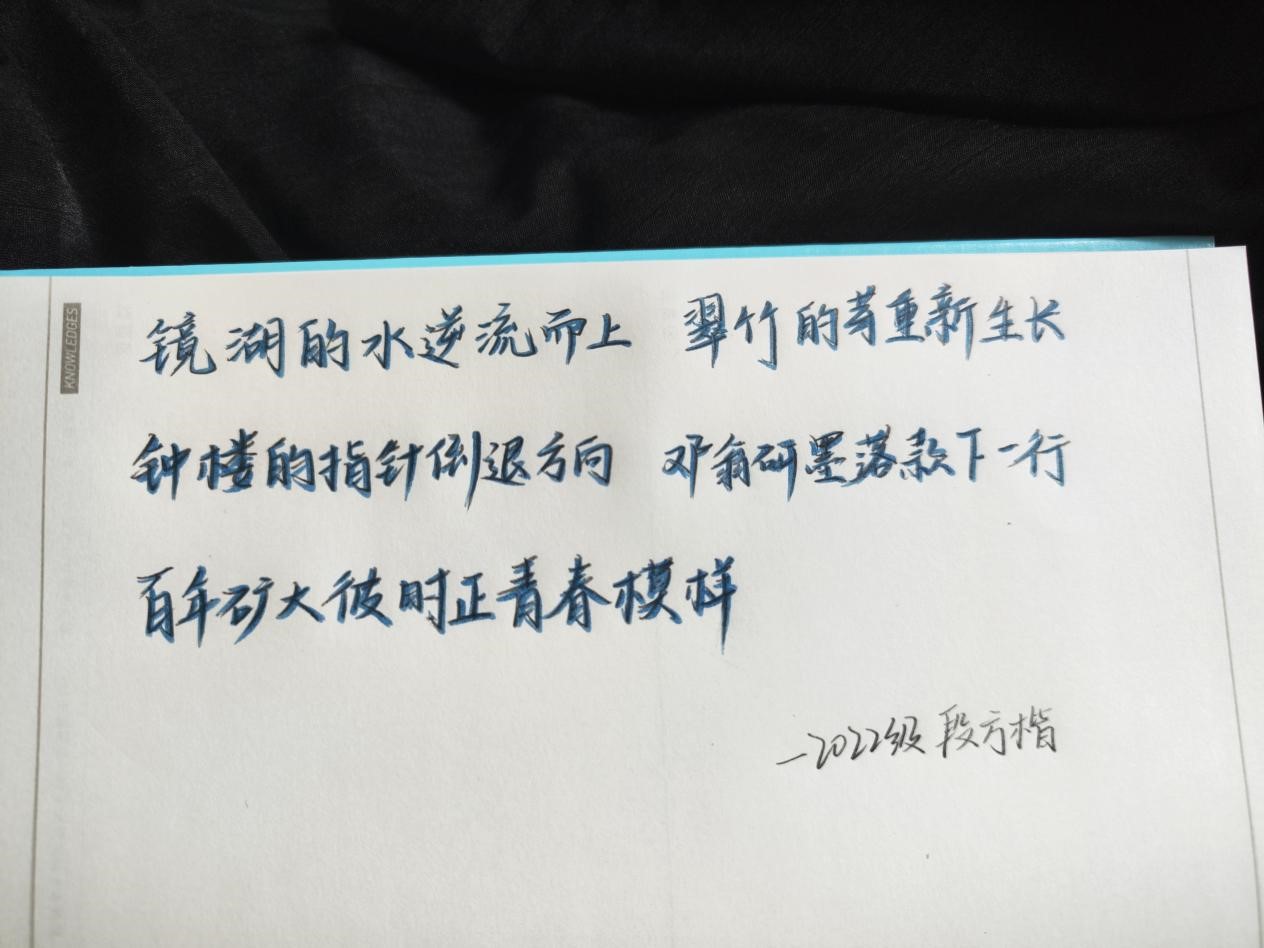 KNOWLEDGES
镜湖的水逆流而上 翠竹的芽重新生长
钟楼的指针倒退方向 邓翁研墨落款下一行
百年矿大彼时正青春模样
—2022级 段方楷